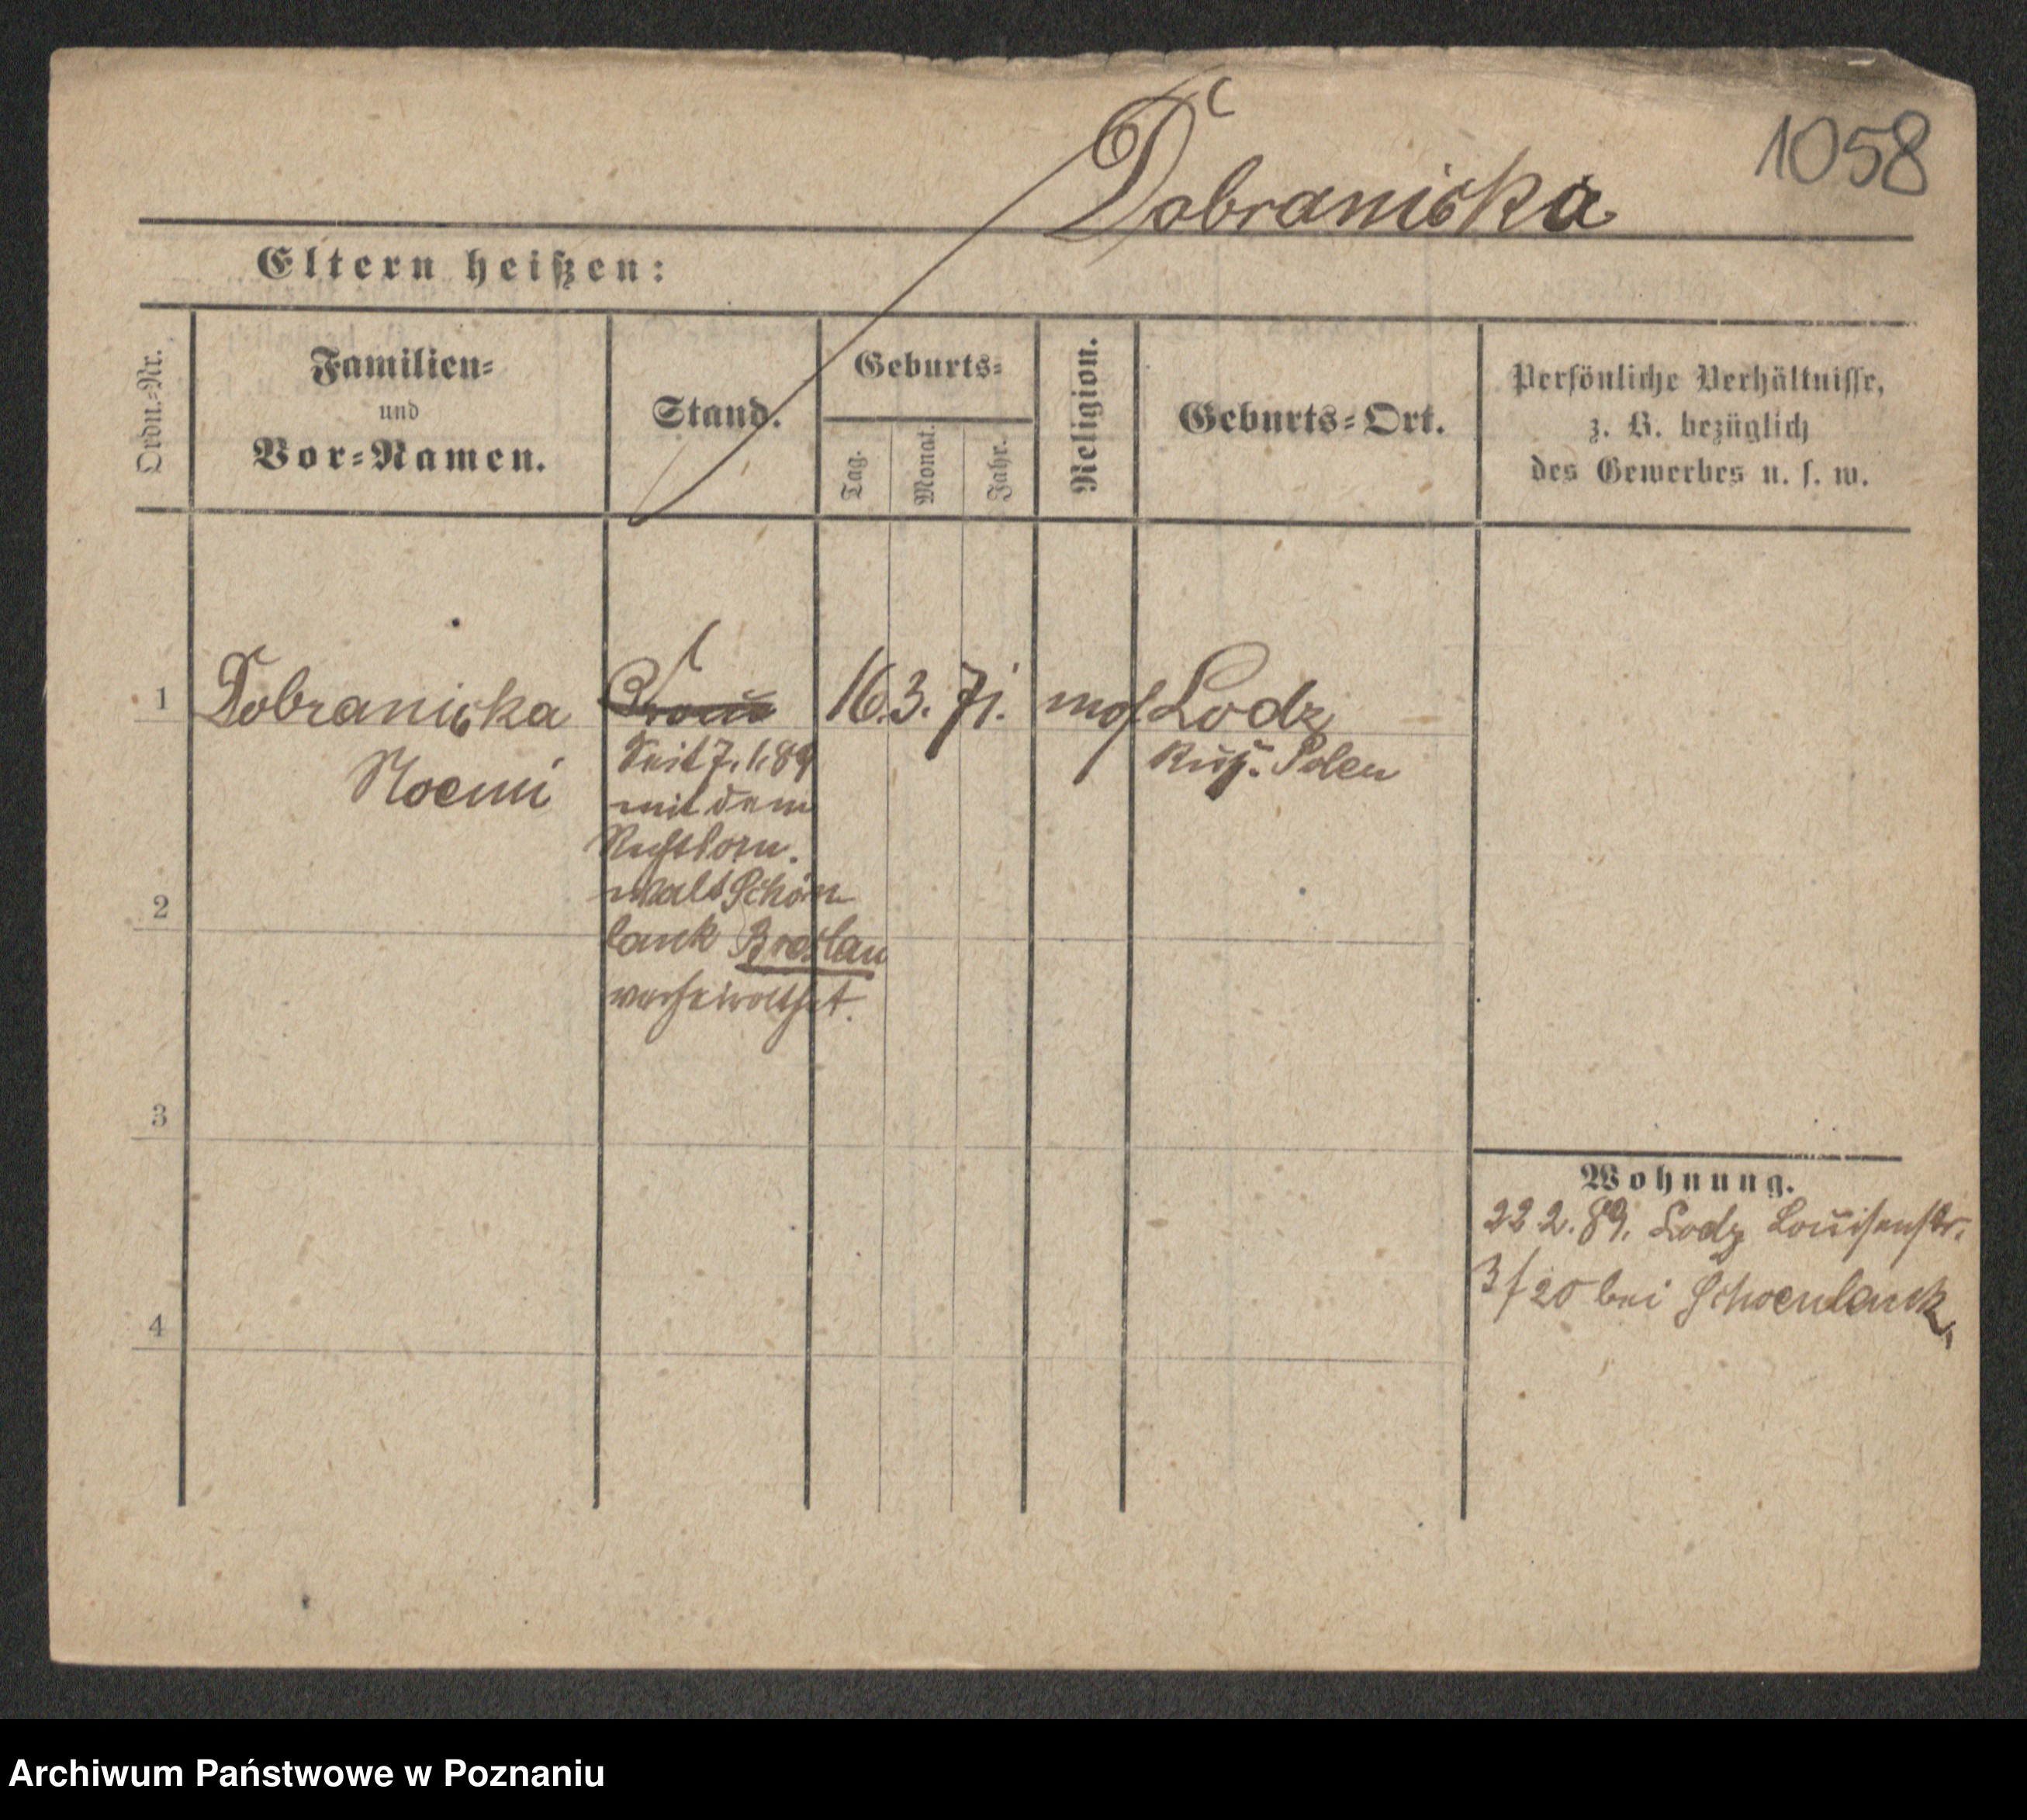 1058
Dobranicka
Eltern heißen:
Ordn.-Nr.
Familien-
und
Vor-Namen.
Stand.
Geburts-
Tag.
Monat.
Jahr.
Religion.
Geburts-Ort.
Persönliche Verhältnisse,
z. B. bezüglich
des Gewerbes u. s. w.
1
Dobranicka
Noemi
16. 3. 71. mos. Lodz
Russ. Polen
Seit 7.1.89
mit dem
walt Schön
lank Breslau
verheirathet.
2
3
4
Wohnung.
22 2. 89. Lodz Louisenstr.
3/20 bei Schoenlank.
Archiwum Państwowe w Poznaniu